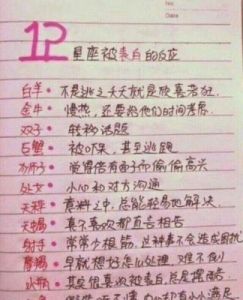 No.
Date
12星座被表白的反应
白羊• 不是逃之夭夭就是欣喜若狂
金牛• 慢热,还要给他们时间考虑
双子• 转移话题
巨蟹• 被吓呆,甚至逃跑
狮子• 觉得倍有面子而偷偷高兴
处女• 小心和对方沟通
天秤• 意料之中,总能轻易地解决
天蝎• 喜不喜欢都直言相告
射手• 常常少根筋,这种事不会造成困扰
摩羯• 早就想好怎么处理,难不倒
水瓶• 其实很喜欢被表白,总是摆